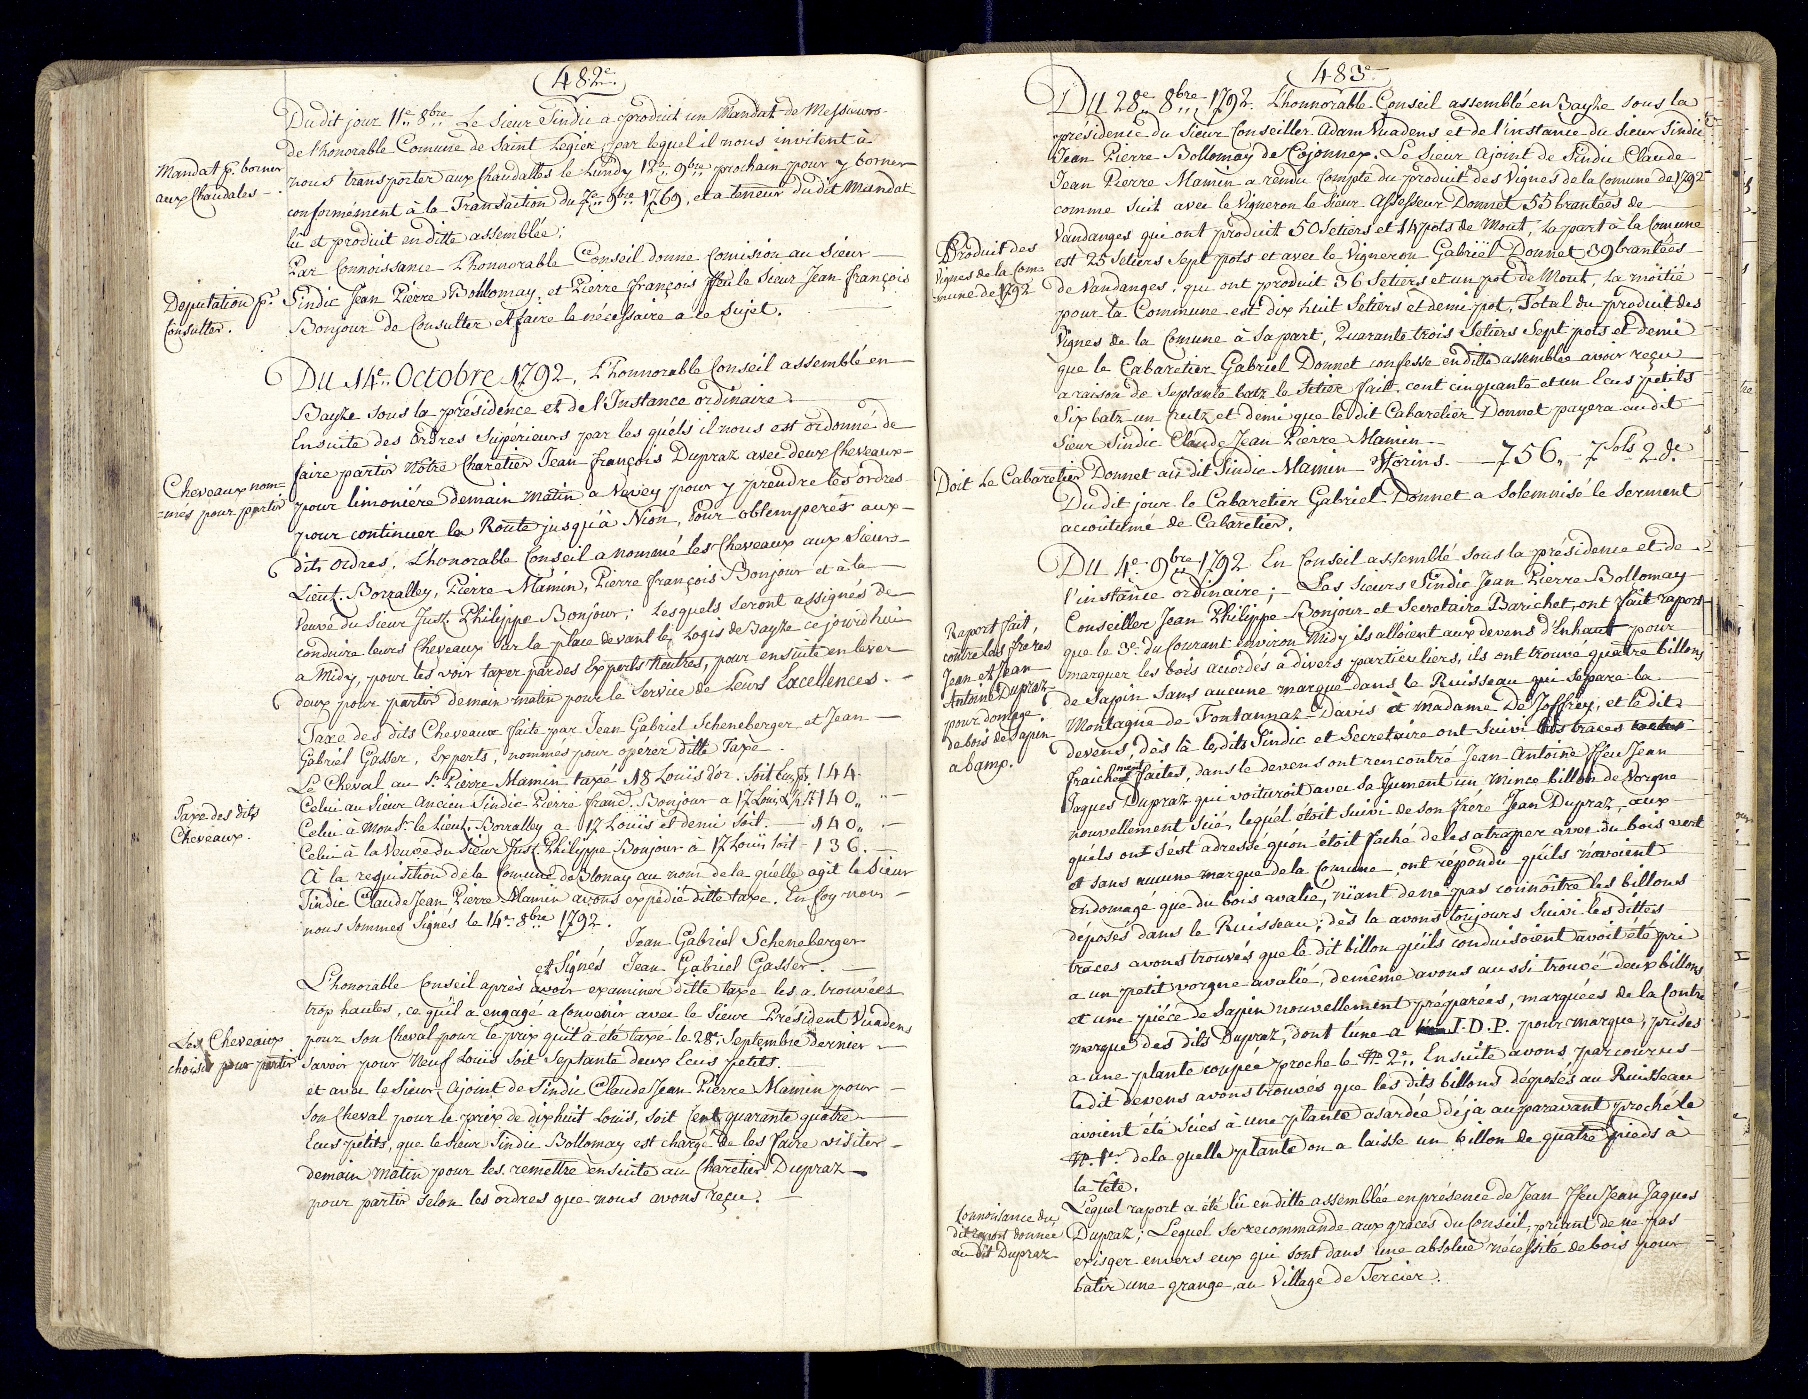 482e.
Du dit jour 11e. 8bre. Le Sieur Sindic a produit un Mandat de Messieurs
de l'honorable Comune de Saint Legier, par lequel il nous invitent à
Mandat p. borner
aux Chaudales.
nous transporter aux Chaudalles le Lundy 12e. 9bre. prochain pour y borner
conformément à la Transaction du 7e. 9bre. 1769, et a teneur du dit Mandat
lû et produit en ditte assemblée;
Par Connoissance L'honnorable Conseil donne Comision au Sieur
Deputation p.
Consulter.
Sindic Jean Pierre Bollomay et Pierre françois ffeu le Sieur Jean françois
Bonjour de Consulter et faire le nécessaire a ce Sujet.
DU 14e. Octobre 1792, L'honnorable Conseil assemblé en
Bayze sous la présidence et de l'Instance ordinaire.
Ensuite des Ordres Supérieurs par les quéls il nous est ordonné de
faire partir Nôtre Charetier Jean françois Dupraz avec deux Cheveaux
Cheveaux nom=
=mes pour partir
pour limoniére demain matin a Vevey pour y prendre les ordres
pour continuer la Route jusqu'à Nion, Pour obtemperés aux
dits ordres, L'honorable Conseil a nommé les Cheveaux aux Sieurs
Lieut. Borralley, Pierre Mamin, Pierre françois Bonjour et à la
Veuve du Sieur Just. Philippe Bonjour; Lesquels seront assignés de
conduire leurs Cheveaux sur la place devant le Logis de Bayze ce jourd'hui
a Midy, pour les voir taxer par des Experts Neutres, pour ensuite en lever
deux pour partir demain matin pour le Service de Leurs Excellences.
Taxe des dits Cheveaux faite par Jean Gabriel Scheneberger et Jean
Gabriel Gasser, Experts, nommés pour operer ditte Taxe.
Le Cheval au Sr. Pierre Mamin taxé 18 Louïs d'or. Soit Ecus pts. 144.
Taxe des dits
Cheveaux.
Celui au Sieur Ancien Sindic Pierre franc. Bonjour a 17 Louis ½ st. 140,,
Celui à Monsr. le Lieut. Borralley a 17 Louïs et demi soit. 140,,
Celui à la Veuve du Sieur Just. Philippe Bonjour a 17 Louïs soit 136.
A la requisition de la Comune de Blonay au nom de la quélle agit le Sieur
Sindic Claude Jean Pierre Mamin avons expédié ditte taxe. En foy nous
nous sommes Signés le 14e. 8bre 1792.
Jean Gabriel Scheneberger
et Signés Jean Gabriel Gasser.
L'honorable Conseil après avoir examiner ditte taxe les a trouvées
trop hautes, ce qu'il a engagé a Convenir avec le Sieur President Vuadens
Les Cheveaux
choisis pour partir
pour son Cheval pour le prix quil a été taxé le 28e. Septembre dernier
Savoir pour Neuf Louïs soit Septante deux Ecus petits.
et avec le Sieur Ajoint de Sindic Claude Jean Pierre Mamin pour
Son Cheval pour le prix de dixhuit Louïs, soit Cent quarante quatre
Ecus petits, que le Sieur Sindic Bollomay est chargé de les faire visiter
demain matin pour les remettre ensuite au Charetier Dupraz
pour partir selon les ordres que nous avons reçu.
483e
DU 28e. 8bre. 1792. L'honnorable Conseil assemblé en Bayze sous la
présidence du Sieur Conseiller Adam Vuadens et de l'instance du Sieur Sindic
Jean Pierre Bollomay de Cojonnex. Le Sieur Ajoint de Sindic Claude
Jean Pierre Mamin a rendu Compte du produit des Vignes de la Comune de 1792
comme suit avec le Vigneron le Sieur Assesseur Donnet 55 brantées de
Vandanges qui ont produit 50 Setiers et 14 pots de Mout, La part à la Comune
Produit des
Vignes de la Com=
=mune de 1792
est 25 Setiers Sept pots et avec le Vigneron Gabriël Donnet 39 brantées
de Vandanges, qui ont produit 36 Setiers et un pot de Mout, La moitié
pour la Commune est dix huit Setiers et demi pot, Total du produit des
Vignes de la Comune à sa part, Quarante trois Setiers Sept pots et demi
que le Cabaretier Gabriel Donnet confesse en ditte assemblée avoir reçu
a raison de Septante batz le Setier fait cent cinquante et un Ecus petits
Six batz un Crutz et demi que le dit Cabaretier Donnet payera au dit
Sieur Sindic Claude Jean Pierre Mamin
Doit Le Cabaretier Donnet au dit Sindic Mamin fflorins. 756,, 7 Sols 2 d.
Du dit jour le Cabaretier Gabriel Donnet a Solemnisé le Serment
accoutumé de Cabaretier.
DU 4e. 9bre. 1792 En Conseil assemblé sous la présidence et de
l'instance ordinaire; Les Sieurs Sindic Jean Pierre Bollomay
Raport fait
contre les frères
Jean et Jean
Antoine Dupraz
pour domage
de bois de Sapin
a bamp.
Conseiller Jean Philippe Bonjour et Secretaire Barichet, ont fait raport
que le 3e. du Courant environ Midy ils alloient aux devens d'Enhaut pour
marquer les bois acordés à divers particuliers, ils ont trouvé quatre billons
de Sapin Sans aucune marque dans le Ruisseau qui sépare la
Montagne de Fontannaz Davis à Madame De Joffrey, et le dit
devens, dès là lesdits Sindic et Secretaire ont Suivi les traces
fraichement faites, dans le devens ont rencontré Jean Antoine ffeu Jean
Jaques Dupraz qui voituroit avec sa Jument un mince billon de Vorgne
nouvellement scié, lequel étoit suivi de son frère Jean Dupraz, aux
quéls ont s'est adressé qu'on étoit faché de les atraper avec du bois vert
et sans aucune marque de la Comune, ont répondu qu'ils n'avoient
endomagé que du bois avalié, niant de ne pas connoître les billons
déposés dans le Ruisseau; dès la avons toujours suivi les dittes
traces avons trouvés que le dit billon qu'ils conduisoient avoit été pri
a un petit vorgne avalié, demême avons aussi trouvé deux billons
et une piéce de Sapin nouvellement préparées, marquées de la Contre
marque des dits Dupraz, dont l'une a J.D.P. pour marque, prises
a une plante coupée proche le No. 2e., Ensuite avons parcourus
le dit devens avons trouvés que les dits billons déposés au Ruisseau
avoient été sciés à une plante asardée déja auparavant proche le
No. 1er. de la quelle plante on a laisse un billon de quatre pieds à
la tête.
Connoisance du
dit raport donnee
au dit Dupraz
Lequel raport a été lû en ditte assemblée en présence de Jean ffeu Jean Jaques
Dupraz; Lequel se recommande aux graces du Conseil, priant de ne pas
exisger envers eux qui sont dans une absoluë nécessité de bois pour
batir une grange au Village de Tercier.